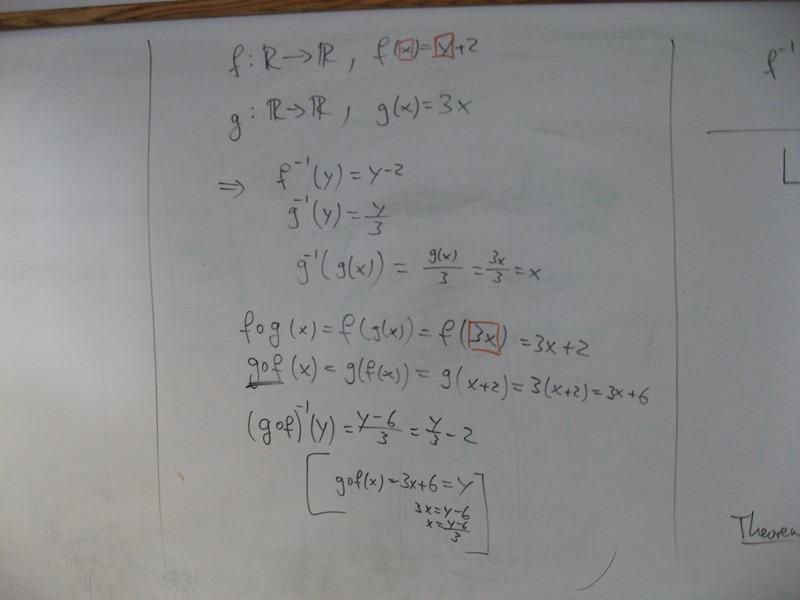 f : ℝ → ℝ , f(x) = x+2
g : ℝ → ℝ , g(x) = 3x
⇒ f⁻¹(y) = y-2
g⁻¹(y) = y/3
g⁻¹(g(x)) = g(x)/3 = 3x/3 = x
fog(x) = f(g(x)) = f(3x) = 3x+2
gof(x) = g(f(x)) = g(x+2) = 3(x+2) = 3x+6
(gof)⁻¹(y) = y-6/3 = y/3 - 2
[ gof(x) = 3x+6 = y
3x = y-6
x = y-6/3 ]
f⁻¹
Theorem